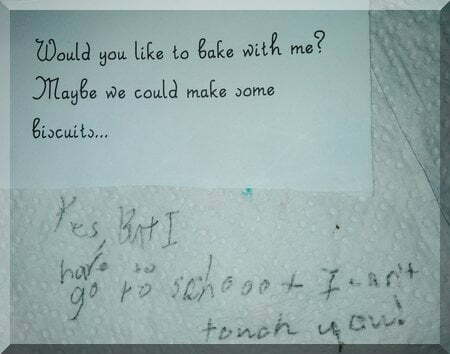 Would you like to bake with me?
Maybe we could make some
biscuits...
Yes, But I
have to
go to school + I can't
touch you!